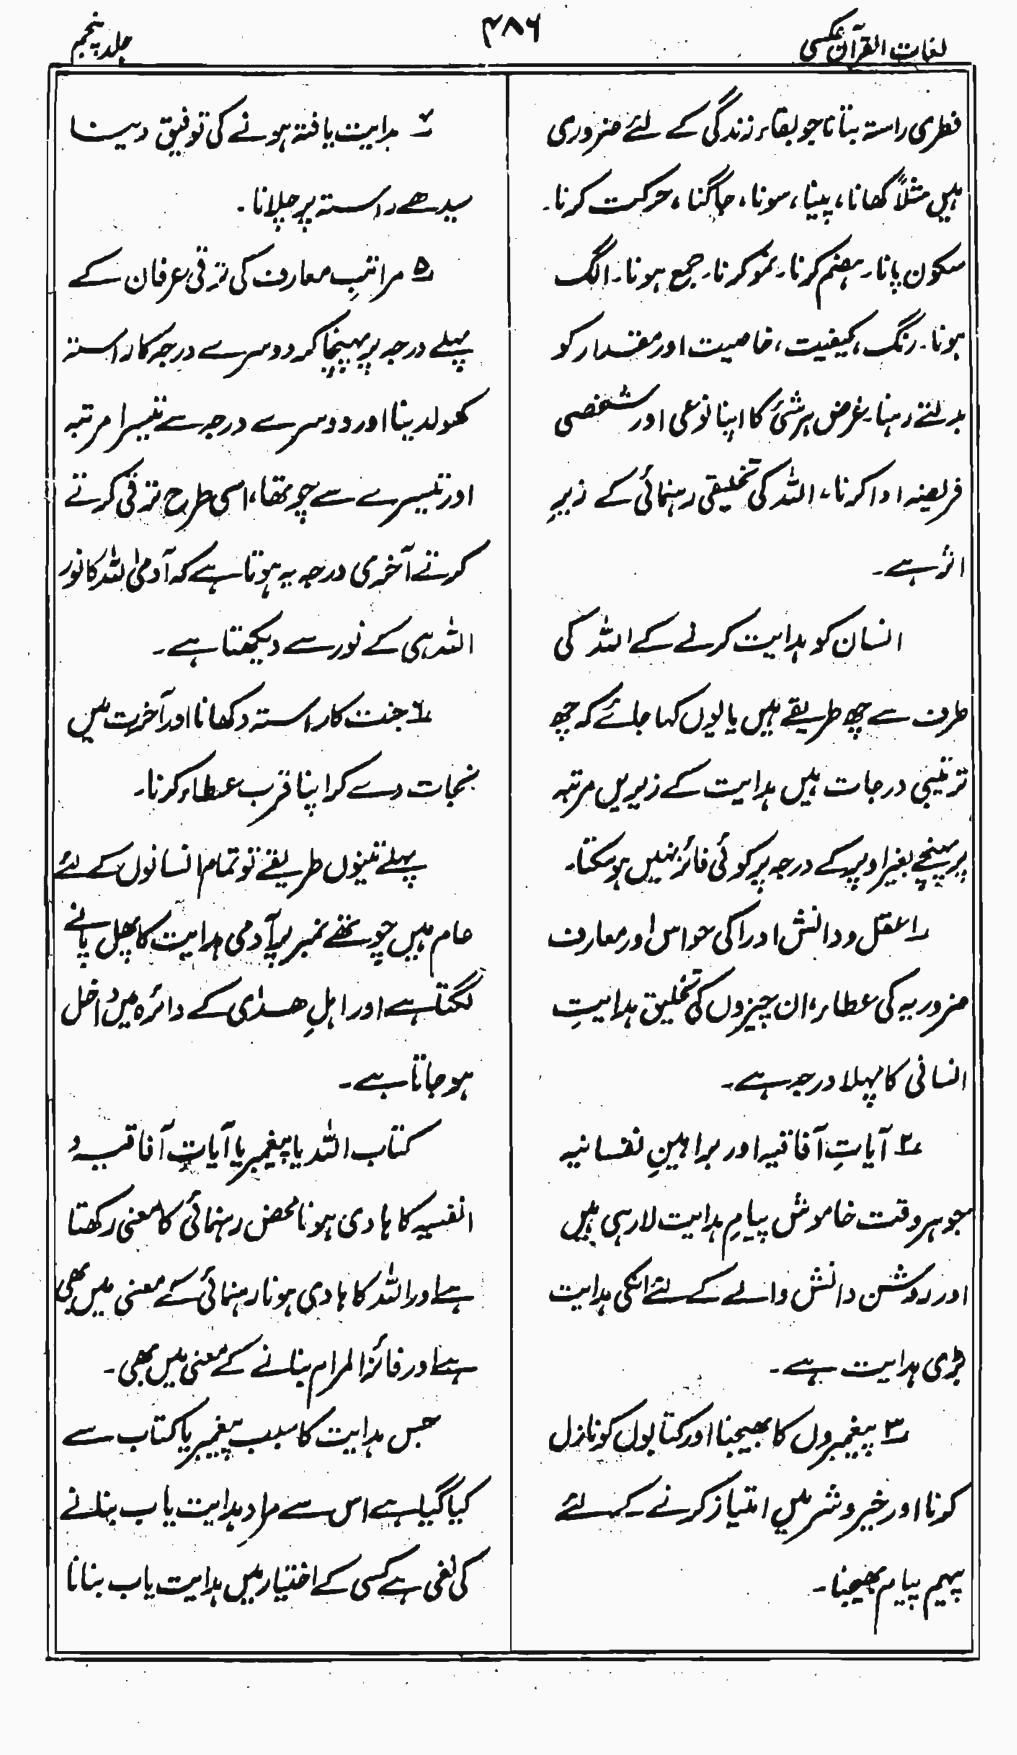 لغات القرآن عکسی
۴۸۶
جلد پنجم
فطری راستہ بتانا جو بقاء زندگی کے لئے ضروری
ہیں مثلاً کھانا، پینا، سونا، جاگنا، حرکت کرنا۔
سکون پانا۔ ہضم کرنا۔ نمو کرنا۔ جمع ہونا۔ الگ
ہونا۔ رنگ، کیفیت، خاصیت اور مقدار کو
بدلتے رہنا۔ غرض ہر شئ کا اپنا نوعی اور شخصی
فریضہ ادا کرنا، اللہ کی تخلیقی رہنمائی کے زیرِ
اثر ہے۔
انسان کو ہدایت کرنے کے اللہ کی
طرف سے چھ طریقے ہیں یا یوں کہا جائے کہ چھ
ترتیبی درجات ہیں ہدایت کے زیریں مرتبہ
پر پہنچے بغیر اوپر کے درجہ پر کوئی فائز نہیں ہو سکتا۔
۱؎ عقل و دانش ادراکی حواس اور معارف
ضروریہ کی عطاء، ان چیزوں کی تخلیق ہدایتِ
انسانی کا پہلا درجہ ہے۔
۲؎ آیاتِ آفاقیہ اور براہینِ نفسانیہ
جو ہر وقت خاموش پیامِ ہدایت لا رہی ہیں
اور روشن دانش والے کے لئے انکی ہدایت
بڑی ہدایت ہے۔
۳؎ پیغمبروں کا بھیجنا اور کتابوں کو نازل
کرنا اور خیر و شر میں امتیاز کرنے کے لئے
پیہم پیام بھیجنا۔
۴؎ ہدایت یافتہ ہونے کی توفیق دینا
سیدھے راستہ پر چلانا۔
۵؎ مراتبِ معارف کی ترقی عرفان کے
پہلے درجہ پر پہنچا کر دوسرے درجہ کا راستہ
کھولدینا اور دوسرے درجہ سے تیسرا مرتبہ
اور تیسرے سے چوتھا، اسی طرح ترقی کرتے
کرتے آخری درجہ یہ ہوتا ہے کہ آدمی اللہ کا نور
اللہ ہی کے نور سے دیکھتا ہے۔
۶؎ جنت کا راستہ دکھانا اور آخرت میں
نجات دے کر اپنا قرب عطاء کرنا۔
پہلے تینوں طریقے تو تمام انسانوں کے لئے
عام ہیں چوتھے نمبر پر آدمی ہدایت کا پھل پانے
لگتا ہے اور اہلِ ھدٰی کے دائرہ میں داخل
ہو جاتا ہے۔
کتاب اللہ یا پیغمبر یا آیاتِ آفاقیہ و
انفسیہ کا ہادی ہونا محض رہنمائی کا معنی رکھتا
ہے اور اللہ کا ہادی ہونا رہنمائی کے معنی میں بھی
ہے اور فائز المرام بنانے کے معنی میں بھی۔
جس ہدایت کا سبب پیغمبر یا کتاب سے
کیا گیا ہے اس سے مراد ہدایت یاب بنانے
کی نفی ہے کسی کے اختیار میں ہدایت یاب بنانا